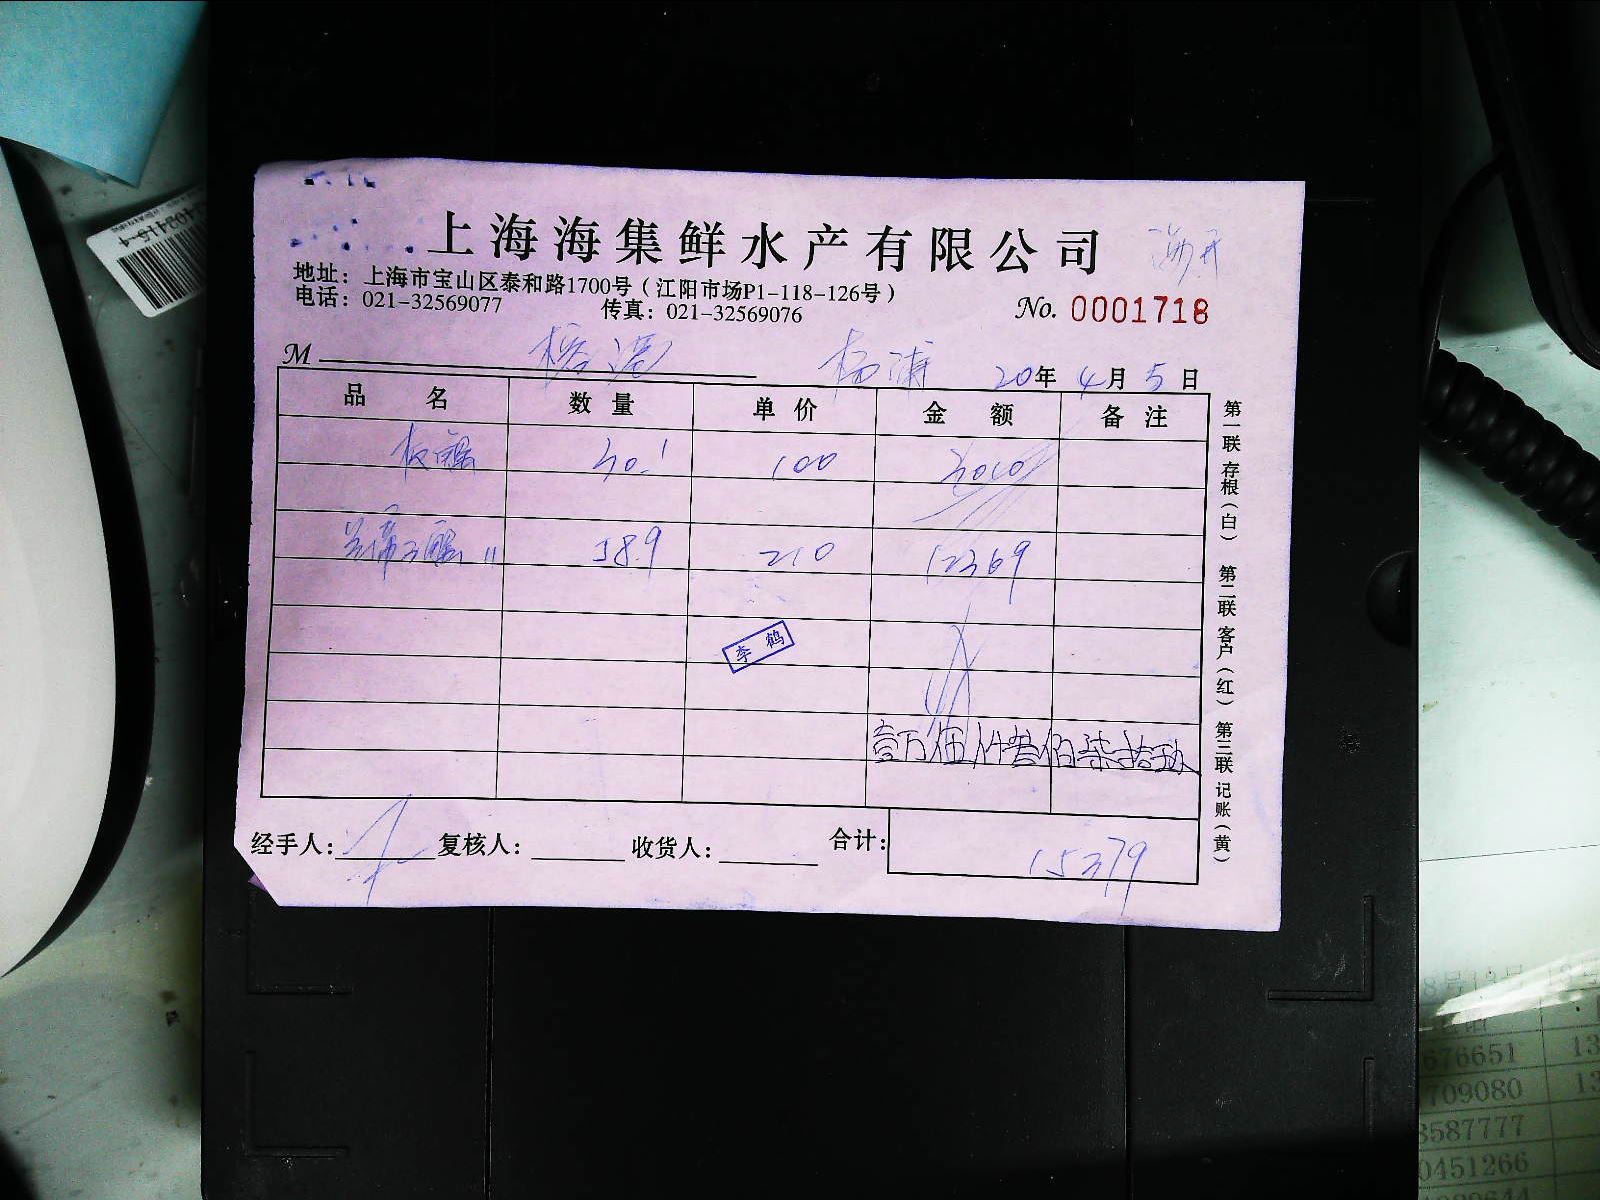 上海海集鲜水产有限公司
地址：上海市宝山区泰和路1700号（江阳市场P1-118-126号）
电话：021-32569077 传真：021-32569076
No. 0001718
M 杨浦 20年4月5日
品名 数量 单价 金额 备注
30.1 100 3010
58.9 210 12369
李鹤
壹万伍仟叁佰柒拾玖
经手人： 复核人： 收货人： 合计： 15379
第一联 存根（白） 第二联 客户（红） 第三联 记账（黄）
676651
709080
3587777
0451266